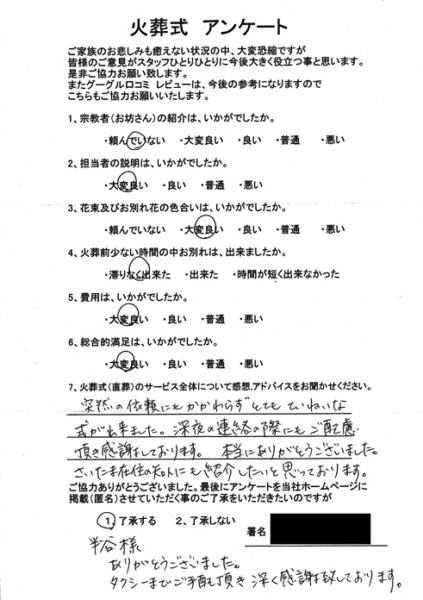 火葬式 アンケート
ご家族のお悲しみも癒えない状況の中、大変恐縮ですが
皆様のご意見がスタッフひとりひとりに今後大きく役立つ事と思います。
是非ご協力お願い致します。
またグーグル口コミ レビューは、今後の参考になりますので
こちらもご協力お願いいたします。
1、宗教者(お坊さん)の紹介は、いかがでしたか。
・頼んでいない ・大変良い ・良い ・普通 ・悪い
2、担当者の説明は、いかがでしたか。
・大変良い ・良い ・普通 ・悪い
3、花束及びお別れ花の色合いは、いかがでしたか。
・頼んでいない ・大変良い ・良い ・普通 ・悪い
4、火葬前少ない時間の中お別れは、出来ましたか。
・滞りなく出来た ・出来た ・時間が短く出来なかった
5、費用は、いかがでしたか。
・大変良い ・良い ・普通 ・悪い
6、総合的満足は、いかがでしたか。
・大変良い ・良い ・普通 ・悪い
7、火葬式(直葬)のサービス全体について感想、アドバイスをお聞かせください。
突然の依頼にもかかわらずとてもていねいな
式が出来ました。深夜の連絡の際にもご配慮
頂き感謝しております。 本当にありがとうございました。
さいたま在住の知人にも紹介したいと思っております。
ご協力ありがとうございました。最後にアンケートを当社ホームページに
掲載(匿名)させていただく事のご了承をいただきたいのですが
1、了承する 2、了承しない
署名
半谷様
ありがとうございました。
タクシーまでご手配頂き 深く感謝致しております。